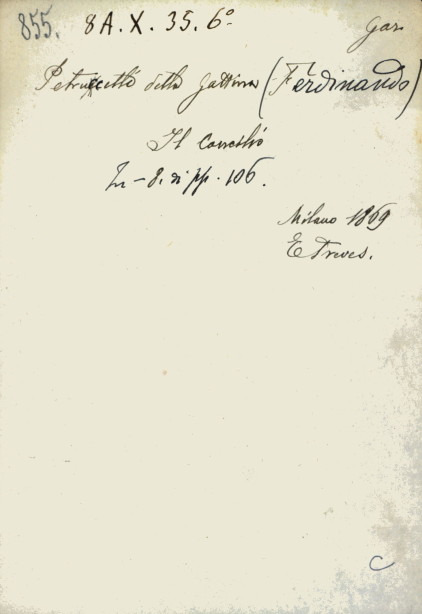 855. 8A.X.35.6º Gar.
Petruccelli della Gattina (Ferdinando)
Il Concilio
In-8. di pp. 106.
Milano 1869
E Treves.
C